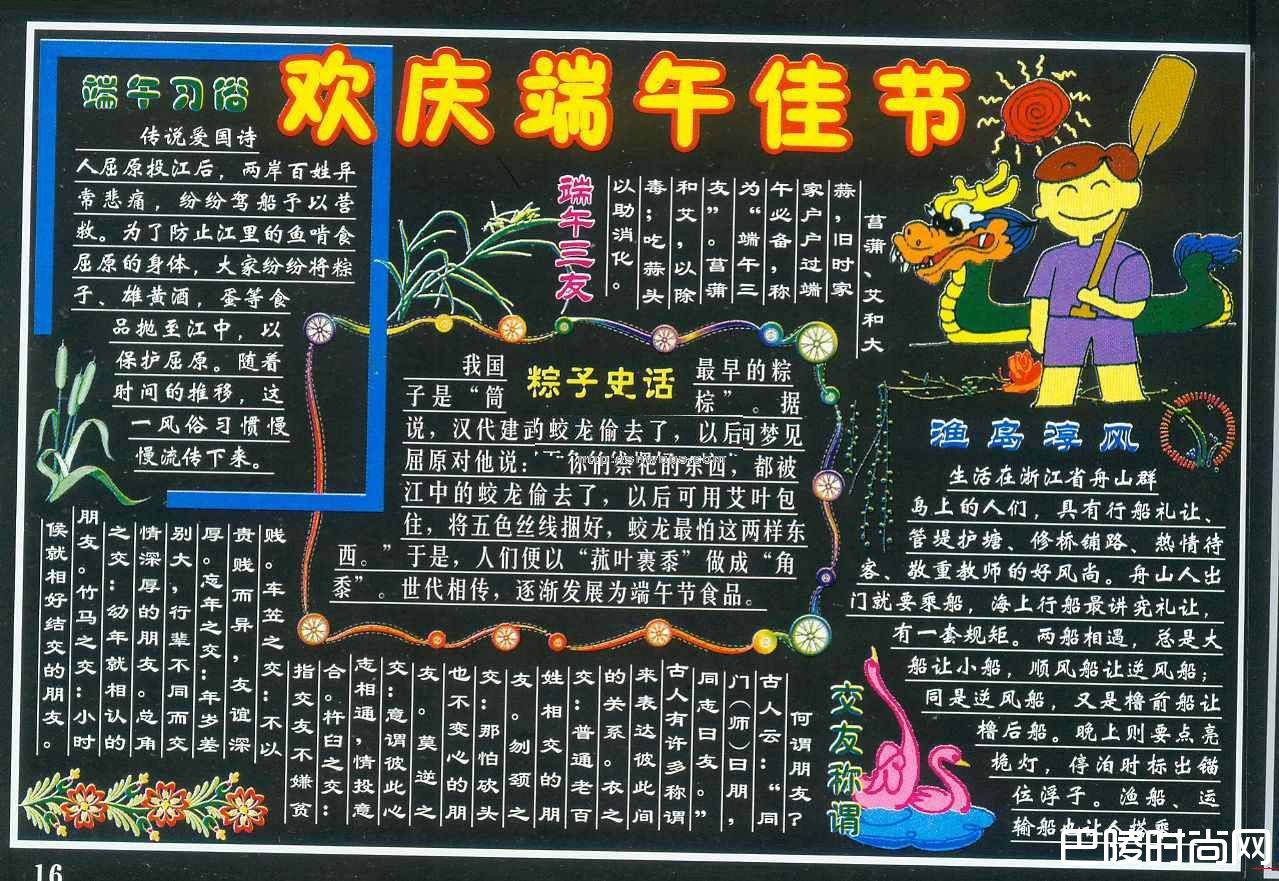 欢庆端午佳节
端午习俗
传说爱国诗
人屈原投江后，两岸百姓异
常悲痛，纷纷驾船予以营
救。为了防止江里的鱼啃食
屈原的身体，大家纷纷将粽
子、雄黄酒，蛋等食
品抛至江中，以
保护屈原。随着
时间的推移，这
一风俗习惯慢
慢流传下来。
端午三友
菖蒲、艾和大
蒜，旧时家
家户户过端
午必备，称
为“端午三
友”。菖蒲
和艾，以除
毒；吃蒜头
以助消化。
粽子史话
我国最早的粽
子是“筒棕”。据
说，汉代建武蛟龙偷去了，以后可梦见
屈原对他说：你的祭祀的东西，都被
江中的蛟龙偷去了，以后可用艾叶包
住，将五色丝线捆好，蛟龙最怕这两样东
西。”于是，人们便以“菰叶裹黍”做成“角
黍”。世代相传，逐渐发展为端午节食品。
渔岛淳风
生活在浙江省舟山群
岛上的人们，具有行船礼让、
管堤护塘、修桥铺路、热情待
客、敬重教师的好风尚。舟山人出
门就要乘船，海上行船最讲究礼让，
有一套规矩。两船相遇，总是大
船让小船，顺风船让逆风船；
同是逆风船，又是橹前船让
橹后船。晚上则要点亮
桅灯，停泊时标出锚
位浮子。渔船、运
输船也让人搭乘。
交友称谓
何谓朋友？
古人云：“同
门（师）曰朋，
同志曰友。”
古人有许多称谓
来表达彼此间
的关系。衣之
交：普通老百
姓相交的朋
友。刎颈之
交：那怕砍头
也不变心的朋
友。莫逆之
交：意谓彼此心
志相通，情投意
合。杵臼之交：
指交友不嫌贫
贱。车笠之交：不以
贵贱而异，友谊深
厚。忘年之交：年岁差
别大，行辈不同而交
情深厚的朋友。总角
之交：幼年就相认的
朋友。竹马之交：小时
候就相好结交的朋友。
16
巴陵时尚网